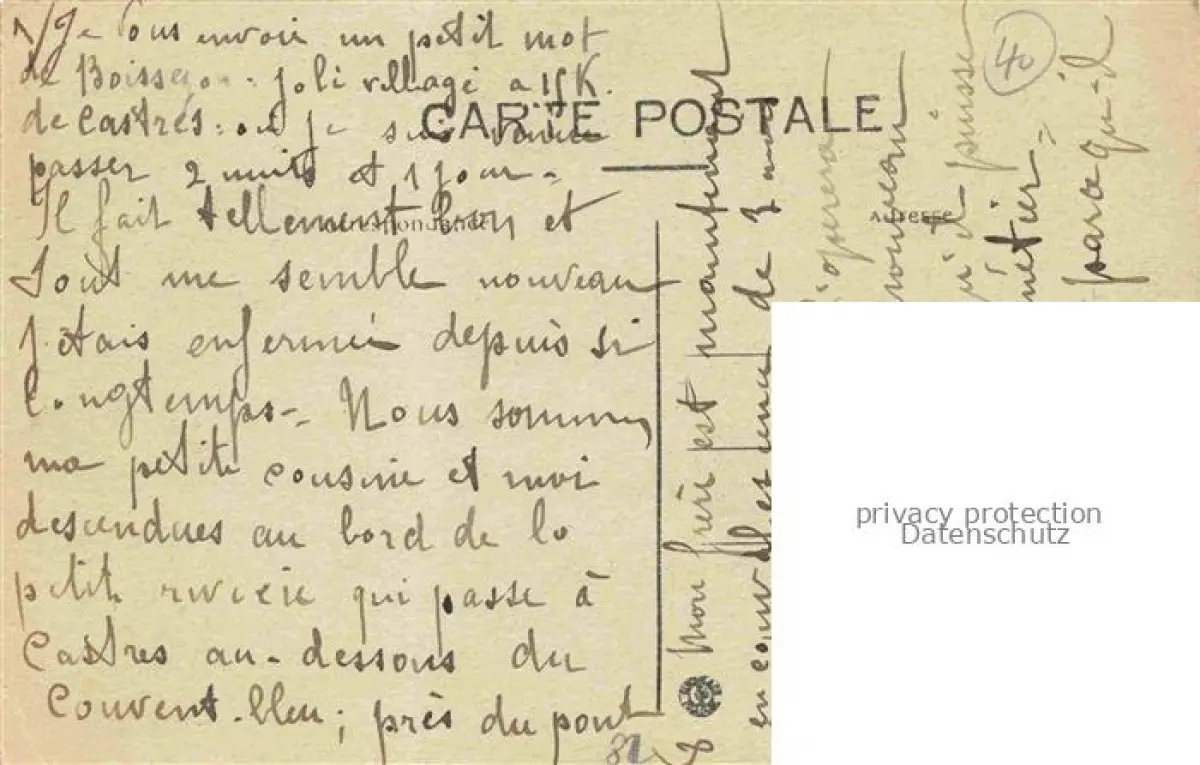 Je vous envoie un petit mot
de Boissezon. joli village a 15 K.
de Castres. où je suis venue
passer 2 nuits et 1 jour.
CARTE POSTALE
Il fait tellement bon et
tout me semble nouveau
j'étais enfermée depuis si
longtemps. Nous sommes
ma petite cousine et moi
descendues au bord de la
petite rivière qui passe à
Castres au-dessous du
Couvent-bleu; près du pont
Mon frère est maintenant
en conval et une de 3 mois
s'opérera
nouveau
qu'il puisse
métier.
parce qu-il
Adresse
40
privacy protection
Datenschutz